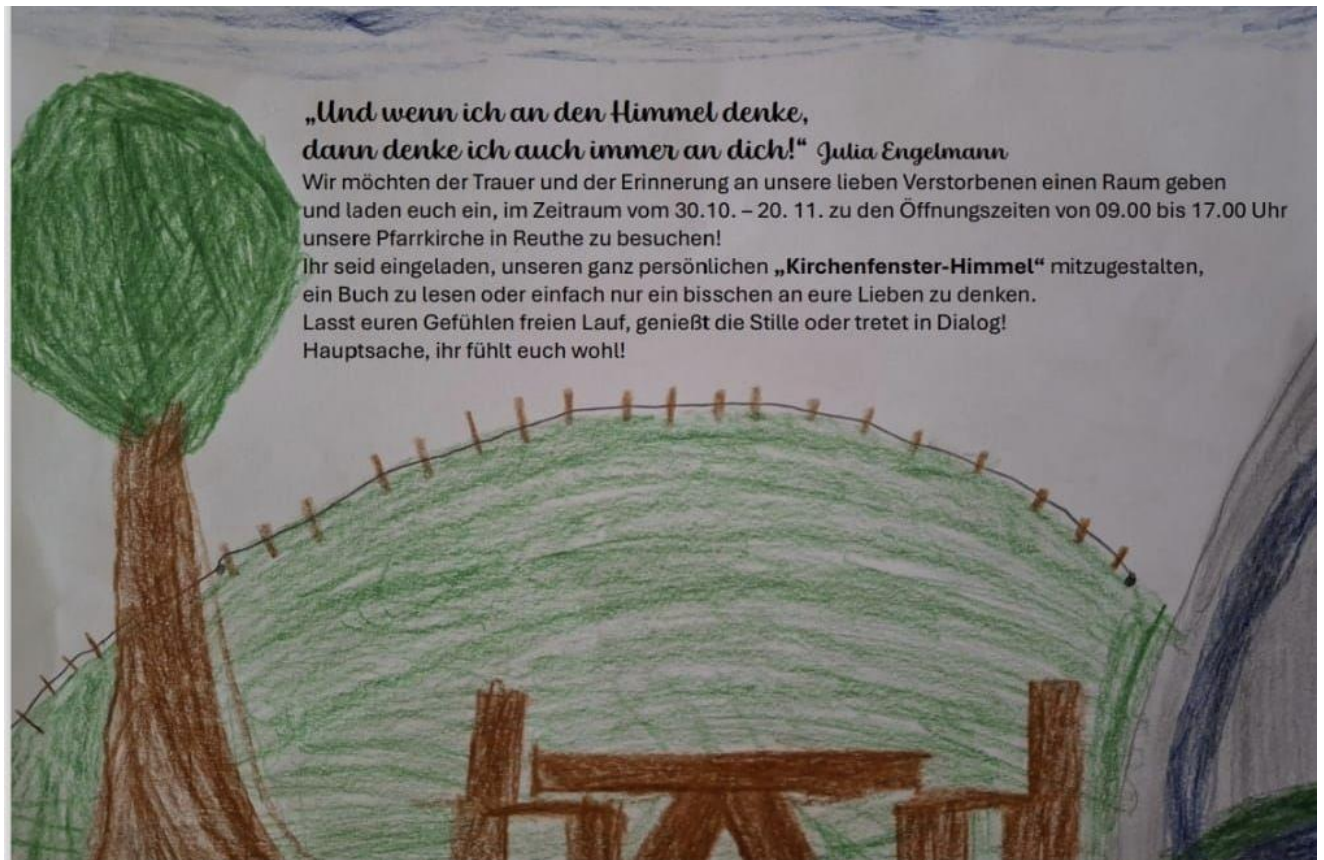 „Und wenn ich an den Himmel denke,
dann denke ich auch immer an dich!“ Julia Engelmann
Wir möchten der Trauer und der Erinnerung an unsere lieben Verstorbenen einen Raum geben
und laden euch ein, im Zeitraum vom 30.10. – 20. 11. zu den Öffnungszeiten von 09.00 bis 17.00 Uhr
unsere Pfarrkirche in Reuthe zu besuchen!
Ihr seid eingeladen, unseren ganz persönlichen „Kirchenfenster-Himmel“ mitzugestalten,
ein Buch zu lesen oder einfach nur ein bisschen an eure Lieben zu denken.
Lasst euren Gefühlen freien Lauf, genießt die Stille oder tretet in Dialog!
Hauptsache, ihr fühlt euch wohl!